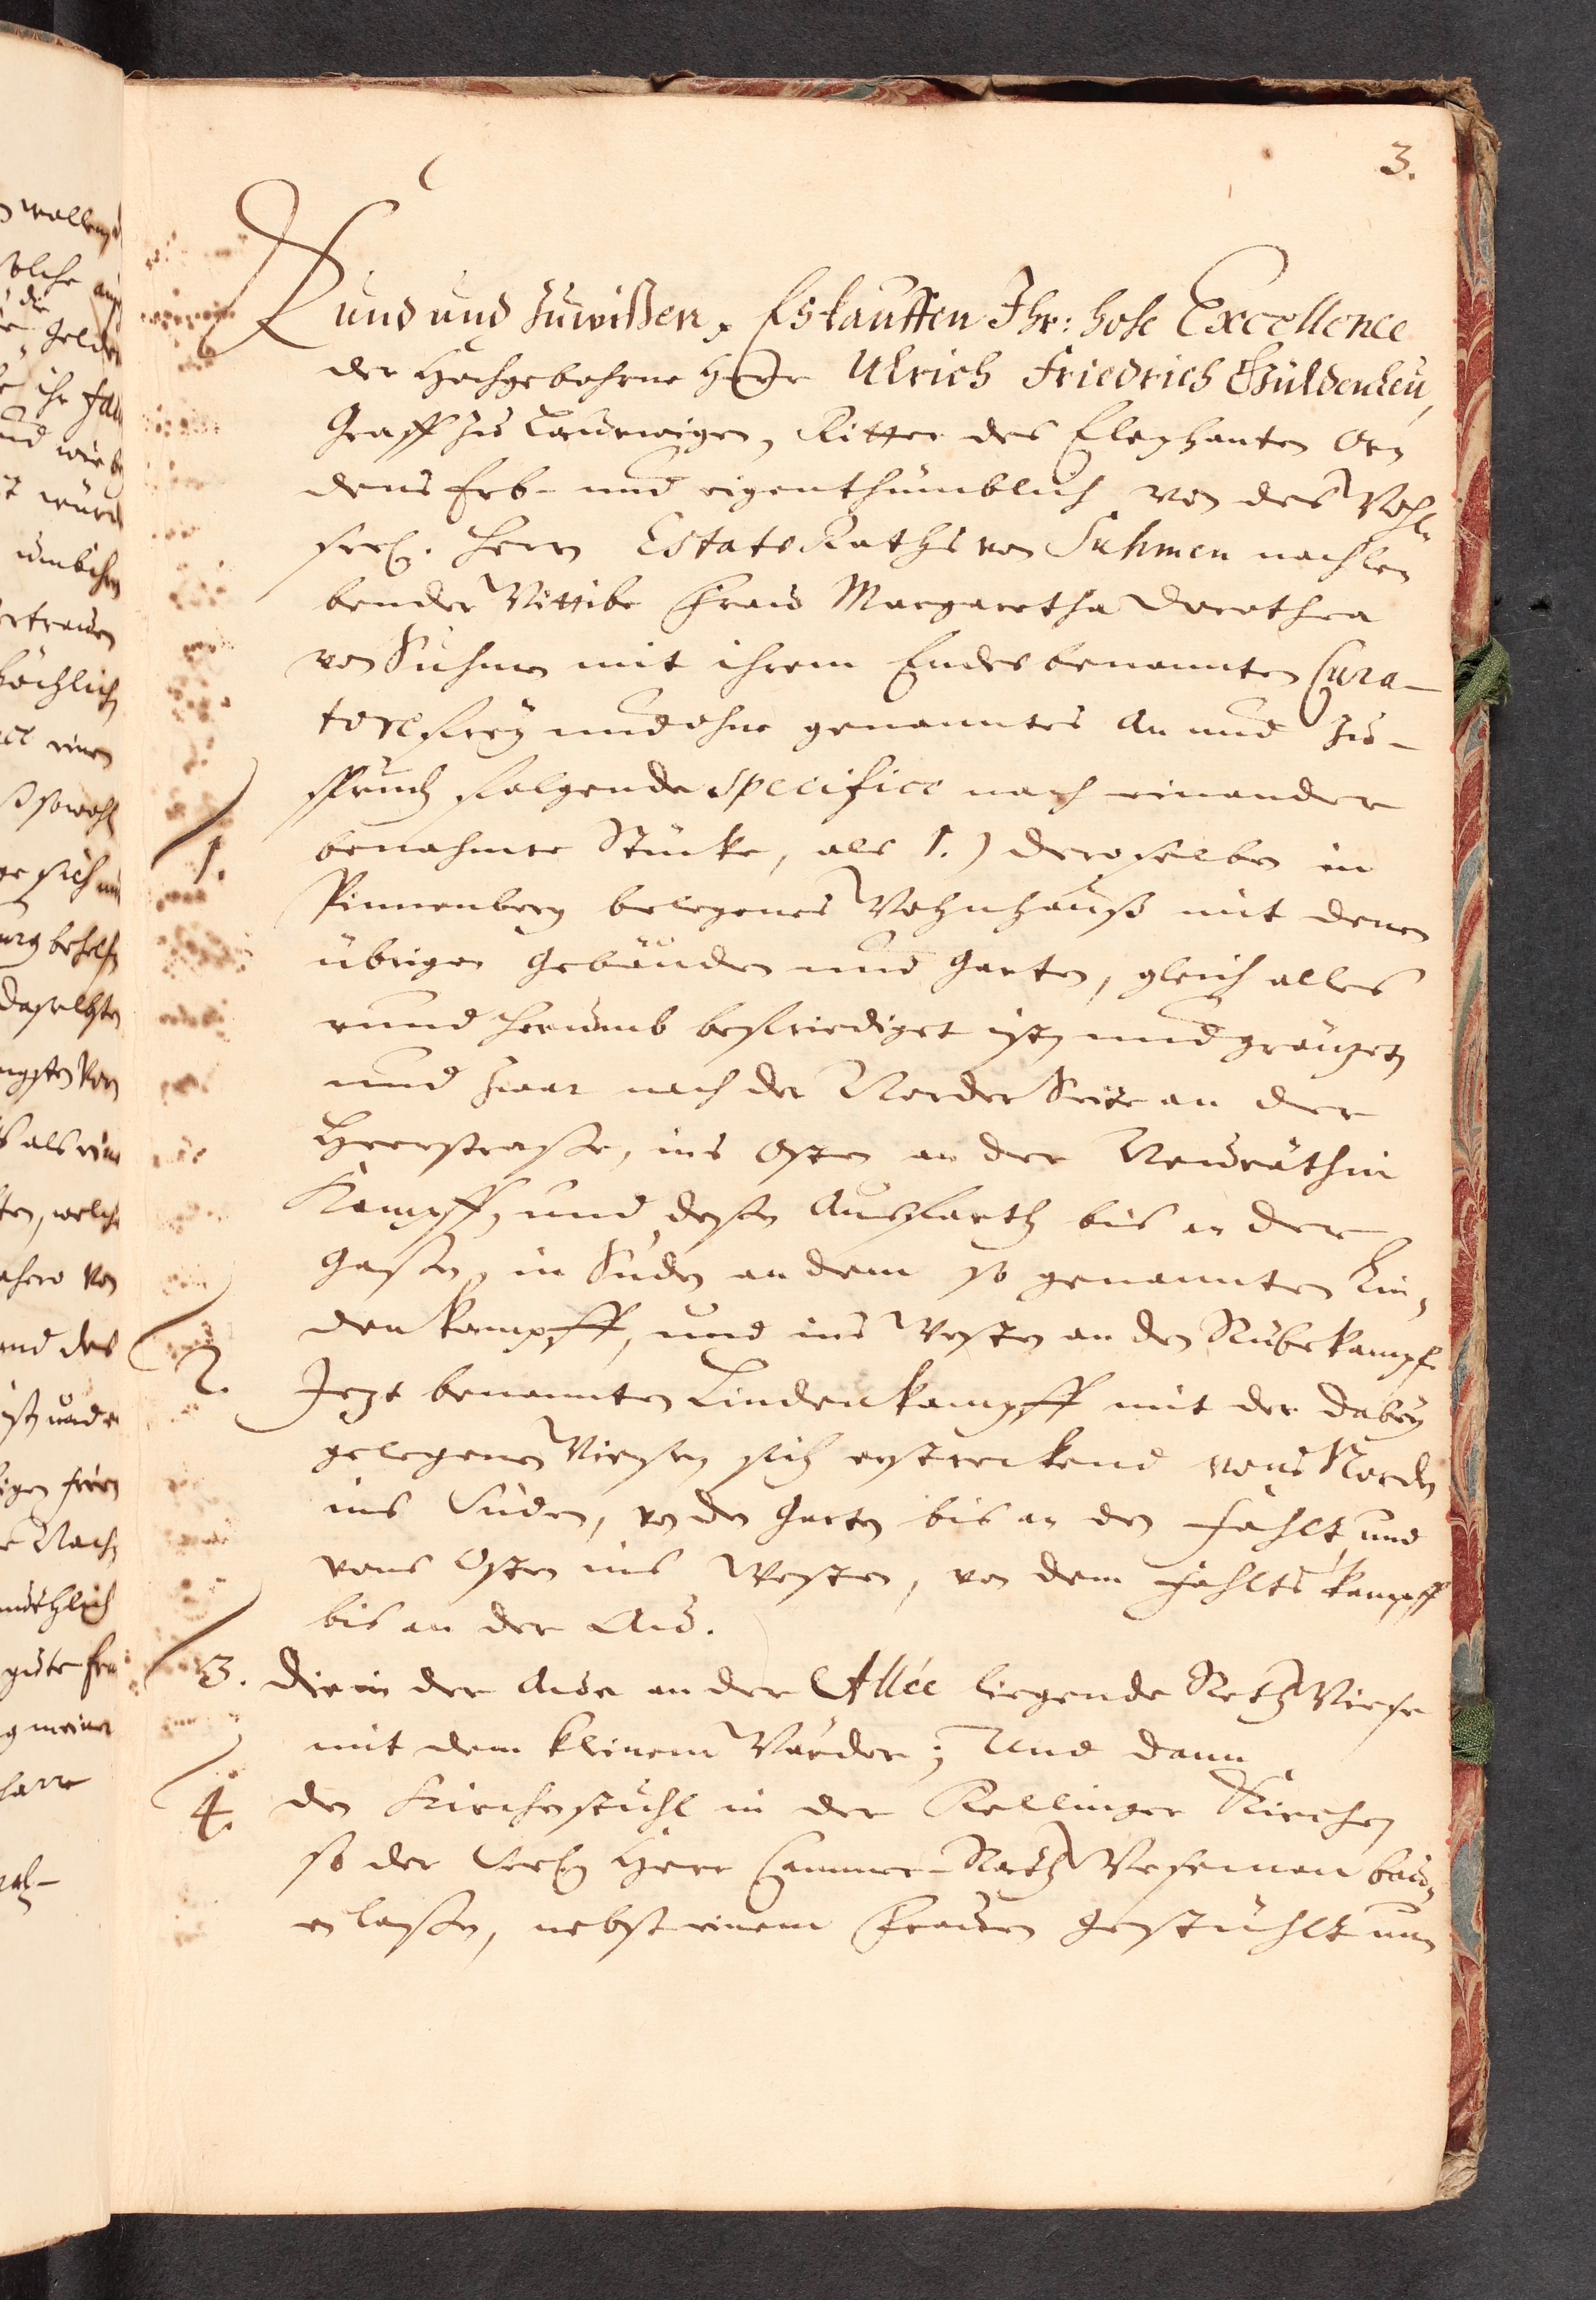 3.
Kund und zuwißen, Es kauffen Ihr: hohe Excellence
der Hochgebohrne Herr Ulrich Friedrich Güldenleu,
Graff zu Laurwigen, Ritter des Elephanten Or-
dens Erb- und eigenthümblich von des Wohl-
seel. Herrn Estats Raths von Suhmen nachle-
bender Wittibe Frau Margaretha Dorothea
von Suhmen mit ihrem Endesbenannten Cura-
tore frey und ohne genanntes An und Zu-
spruch folgende specifice nach einander
benahmte Stücke, als 1.) deroselben in
1.
Pinnenberg belegenes Wohnhauß mit denen
übrigen Gebäuden und Garten, gleich alles
rund herumb befriediget ist, und gräntzet,
und zwar nach der Norder Seite an der
Heerstraße, ins Osten an der
Kampff, und deßen Ausfarth bis an der
Gaßen, in Süden an dem so genannten Lin-
denkampff, und ins Westen an den Rübekampf
2. Jezt benannten Lindenkampff mit der dabey
gelegenen Wiesen sich erstreckend vons Norden
ins Süden, von den Garten bis an den Fahlt, und
vons Osten ins Westen, von dem Fahlts kampff
bis an der Au.
3. Die in der Aue an der Allée liegende Reth Wiese
mit dem kleinem Warder; Und dann
4. den Kirchenstuhl in der Rellinger Kirchen
so der Seel. Herr Cammer-Rath Weseman bau-
en laßen, nebst einem Frauen Gestühlt nun